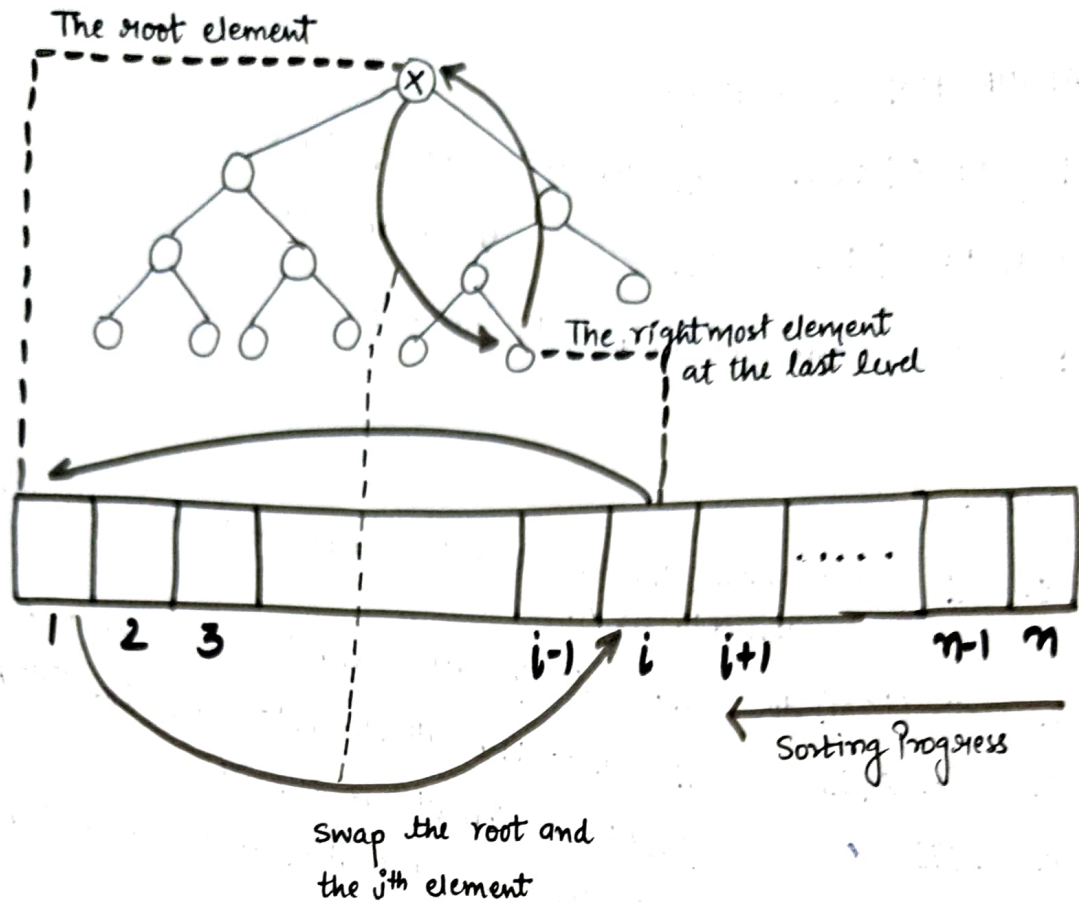 The root element
X
The rightmost element
at the last level
.....
1 2 3 i-1 i i+1 n-1 n
Sorting Progress
Swap the root and
the ith element